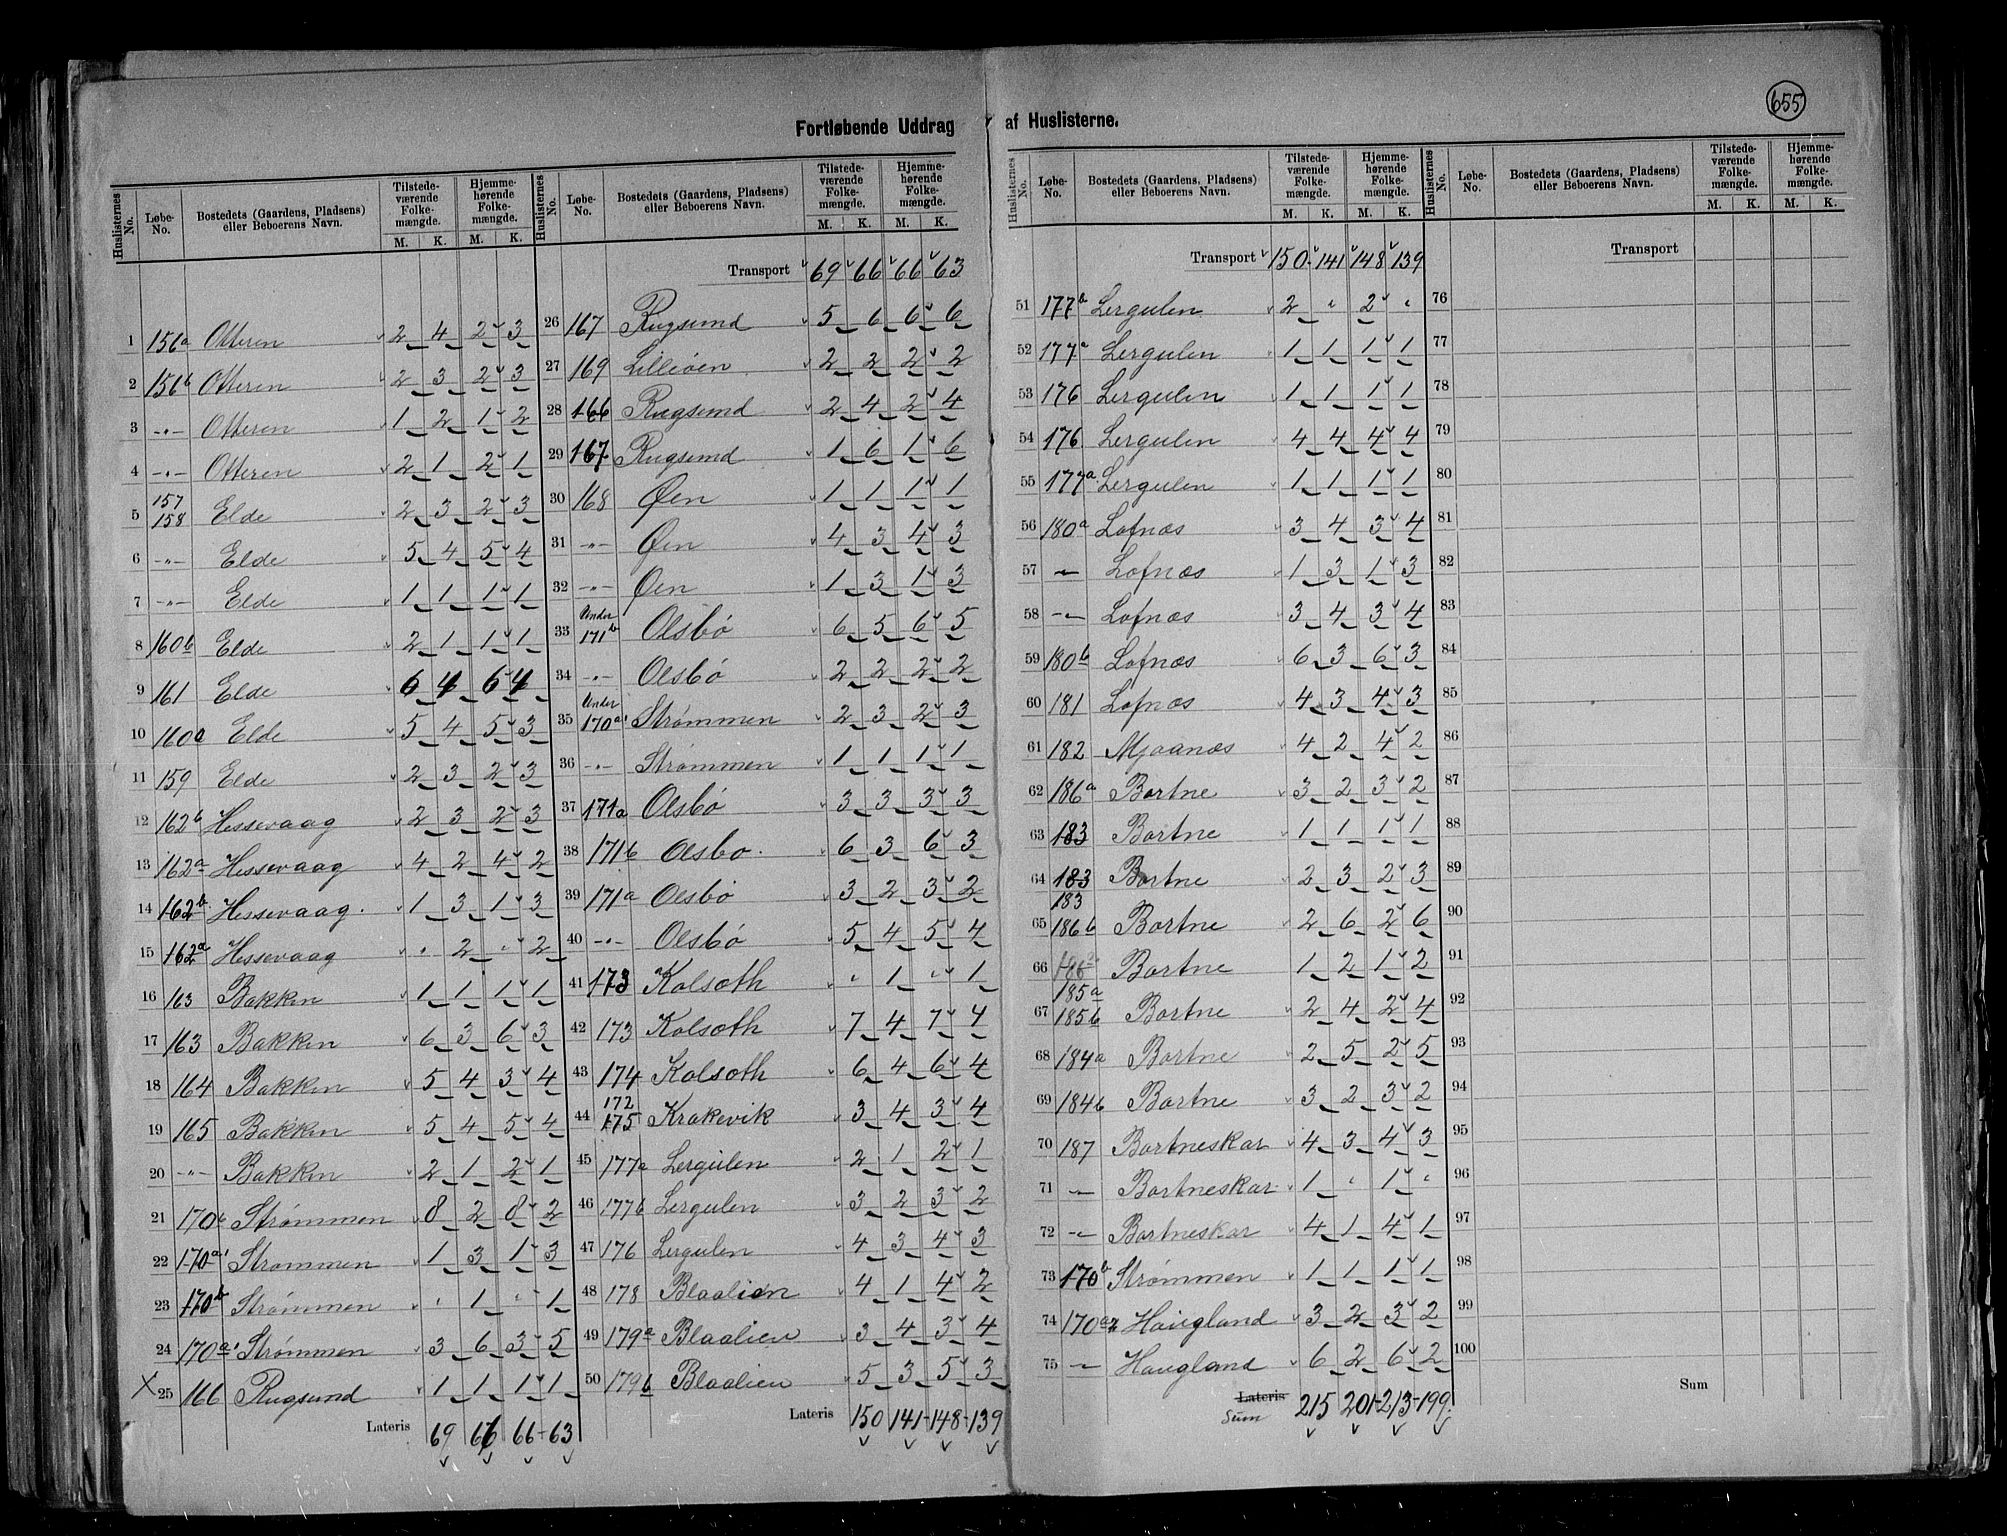 655
Fortløbende Uddrag af Huslisterne.
Huslisternes No. | Løbe-No. | Bostedets (Gaardens, Pladsens) eller Beboerens Navn. | Tilstedeværende Folkemængde. M. K. | Hjemmehørende Folkemængde. M. K.
1 156a Otteren 2 4 2 3
2 156b Otteren 2 3 2 3
3 -"- Otteren 1 2 1 2
4 -"- Otteren 2 1 2 1
5 157 158 Elde 2 3 2 3
6 -"- Elde 5 4 5 4
7 -"- Elde 1 1 1 1
8 160b Elde 2 1 1 1
9 161 Elde 6 4 6 4
10 160a Elde 5 4 5 3
11 159 Elde 2 3 2 3
12 162b Hessevaag 2 3 2 3
13 162a Hessevaag 4 2 4 2
14 162b Hessevaag. 1 3 1 3
15 162a Hessevaag " 2 " 2
16 163 Bakken 1 1 1 1
17 163 Bakken 6 3 6 3
18 164 Bakken 5 4 3 4
19 165 Bakken 5 4 5 4
20 -"- Bakken 2 1 2 1
21 170b Strømmen 8 2 8 2
22 170a' Strømmen 1 3 1 3
23 170b Strømmen " 1 " 1
24 170a' Strømmen 3 6 3 5
X 25 166 Rugsund 1 1 1 1
Lateris 69 66 66 63
Huslisternes No. | Løbe-No. | Bostedets (Gaardens, Pladsens) eller Beboerens Navn. | Tilstedeværende Folkemængde. M. K. | Hjemmehørende Folkemængde. M. K.
Transport 69 66 66 63
26 167 Rugsund 5 6 6 6
27 169 Lilleøen 2 2 2 2
28 166 Rugsund 2 4 2 4
29 167 Rugsund 1 6 1 6
30 168 Øen 1 1 1 1
31 -"- Øen 4 3 4 3
32 -"- Øen 1 3 1 3
33 Under 171b Olsbø 6 5 6 5
34 -"- Olsbø 2 2 2 2
35 Under 170a' Strømmen 2 3 2 3
36 -"- Strømmen 1 1 1 1
37 171a Olsbø 3 3 3 3
38 171b Olsbø. 6 3 6 3
39 171a Olsbø 3 2 3 2
40 -"- Olsbø 5 4 5 4
41 173 Kolsøth " 1 " 1
42 173 Kolsøth 7 4 7 4
43 174 Kolsøth 6 4 6 4
44 172 175 Krakevik 3 4 3 4
45 177a Lergulen 2 1 2 1
46 177b Lergulen 3 2 3 2
47 176 Lergulen 4 3 4 3
48 178 Blaalien 4 1 4 2
49 179a Blaalien 3 4 3 4
50 179b Blaalien 5 3 5 3
Lateris 150 141 148 139
Huslisternes No. | Løbe-No. | Bostedets (Gaardens, Pladsens) eller Beboerens Navn. | Tilstedeværende Folkemængde. M. K. | Hjemmehørende Folkemængde. M. K.
Transport 150 141 148 139
51 177b Lergulen 2 " 2 "
52 177a Lergulen 1 1 1 1
53 176 Lergulen 1 1 1 1
54 176 Lergulen 4 4 4 4
55 177a Lergulen 1 1 1 1
56 180a Lofnæs 3 4 3 4
57 -"- Lofnæs 1 3 1 3
58 -"- Lofnæs 3 4 3 4
59 180b Lofnæs 6 3 6 3
60 181 Lofnæs 4 3 4 3
61 182 Mjaanæs 4 2 4 2
62 186a Bortne 3 2 3 2
63 183 Bortne 1 1 1 1
64 183 Bortne 2 3 2 3
65 183 186b Bortne 2 6 2 6
66 186a Bortne 1 2 1 2
67 185a 185b Bortne 2 4 2 4
68 184a Bortne 2 5 2 5
69 184b Bortne 3 2 3 2
70 187 Bortneskar 4 3 4 3
71 -"- Bortneskar 1 " 1 "
72 -"- Bortneskar 4 1 4 1
73 170b Strømmen 1 1 1 1
74 170a2 Haugland 3 2 3 2
75 -"- Haugland 6 2 6 2
Lateris Sum 215 201 213 199
Huslisternes No. | Løbe-No. | Bostedets (Gaardens, Pladsens) eller Beboerens Navn. | Tilstedeværende Folkemængde. M. K. | Hjemmehørende Folkemængde. M. K.
Transport
76
77
78
79
80
81
82
83
84
85
86
87
88
89
90
91
92
93
94
95
96
97
98
99
100
Sum